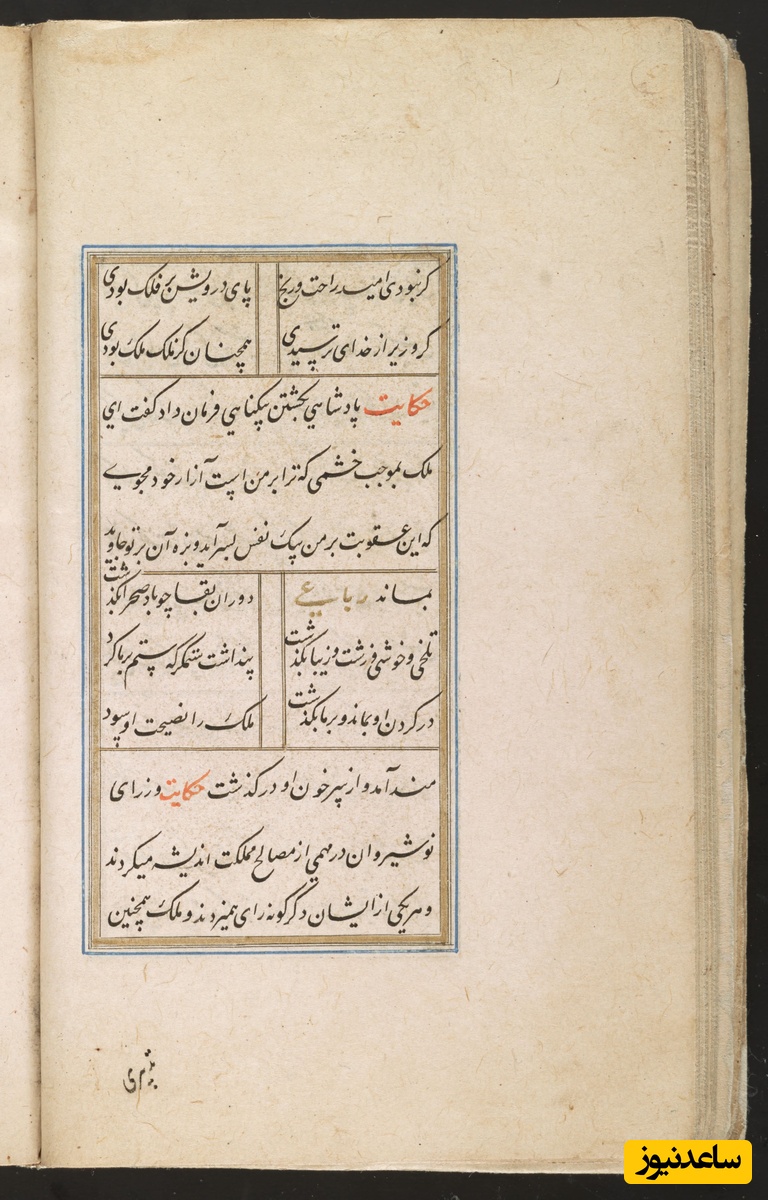 گر نبودی امید راحت و رنج پای درویش بر فلک بودی
گر وزیر از خدای ترسیدی همچنان کز ملک ملک بودی
حکایت پادشاهی بکشتن بیگناهی فرمان داد گفت ای
ملک بموجب خشمی که ترا بر من است آزار خود مجوی
که این عقوبت بر من بیک نفس بسر آید و بزه آن بر تو جاوید
بماند رباعی دوران بقا چو باد صحرا بگذشت
تلخی و خوشی و زشت و زیبا بگذشت پنداشت ستمگر که ستم بر ما کرد
در گردن او بماند و بر ما بگذشت ملک را نصیحت او سود
مند آمد و از سر خون او در گذشت حکایت وزرای
نوشیروان در مهمی از مصالح مملکت اندیشه میکردند
و هر یکی از ایشان دگرگونه رای همیزدند و ملک همچنین
ساعدنیوز